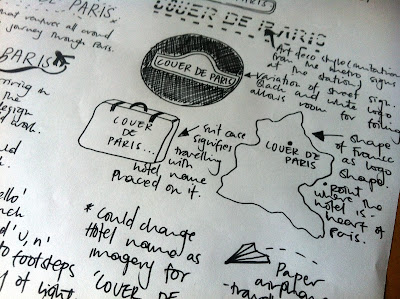 PARIS
all around
journey through Paris.
COUER DE PARIS
Art deco style imitation
from the metro signs
of the stations.
COUER DE PARIS
variation of street sign.
Black and white logo
allows room for foiling
PARIS
COUER
DE
PARIS...
suit case
signifies
travelling
with
hotel name
placed on it.
COUER DE
PARIS
shape
of France
as logo
shape.
point
where the
hotel is -
heart of
Paris.
* Could change
Hotel name as
imagery for
'COUER DE
Paper
to footsteps
of light